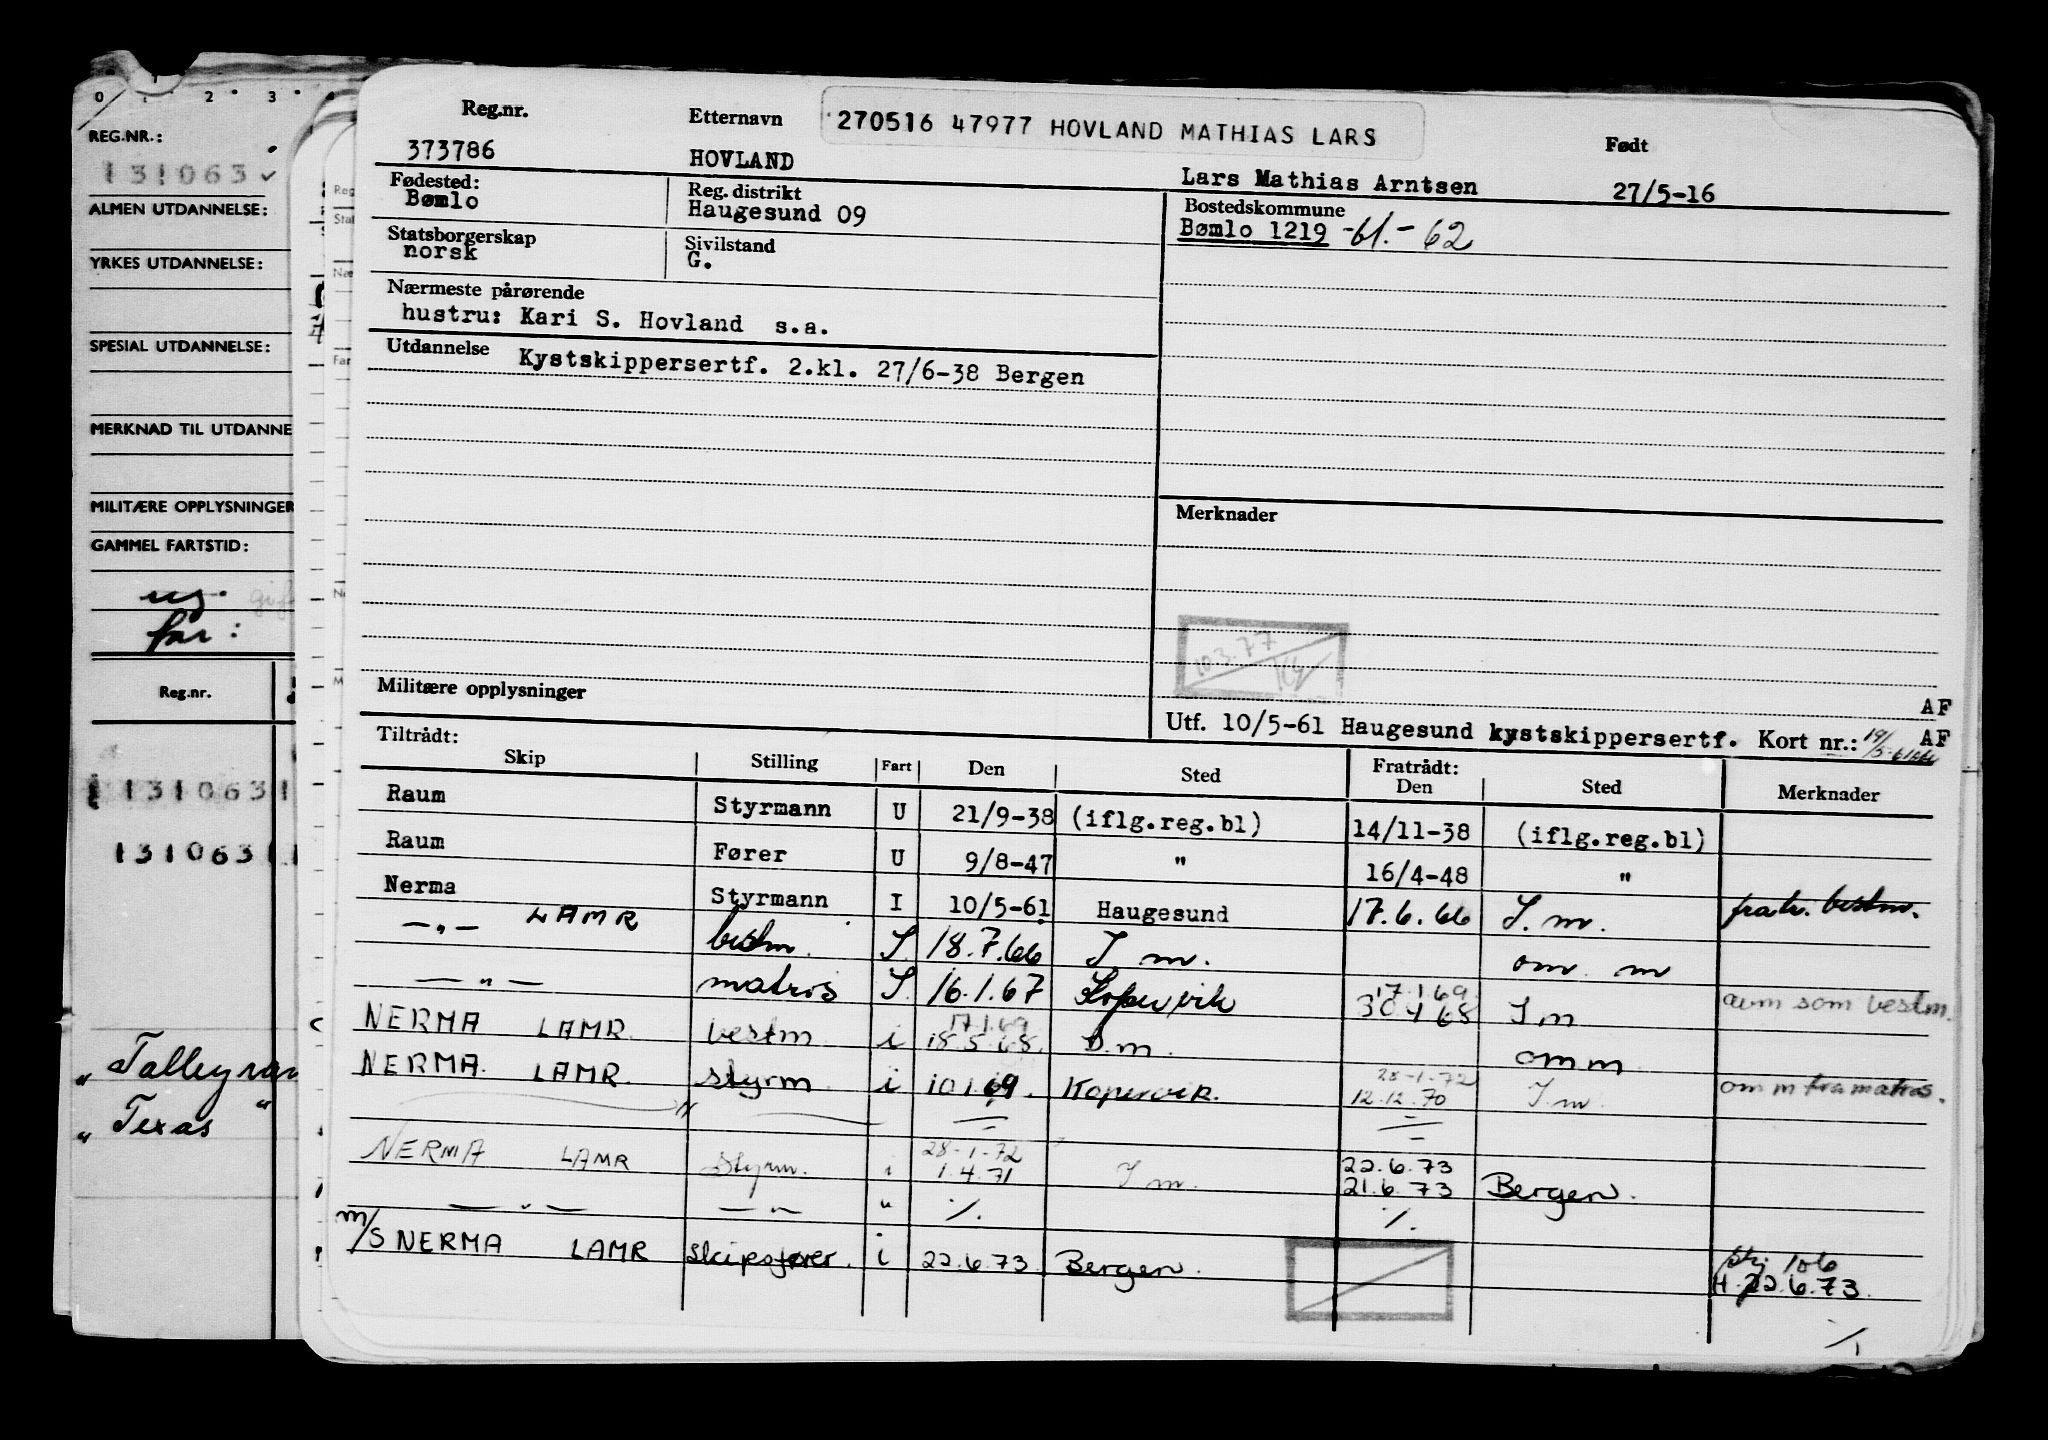 0 1 2 3
REG.NR.:
131063
ALMEN UTDANNELSE:
YRKES UTDANNELSE:
SPESIAL UTDANNELSE:
MERKNAD TIL UTDANNE
MILITÆRE OPPLYSNINGER
GAMMEL FARTSTID:
ug.
far:
Reg.nr.
131063
131063
" Talleyran
" Texas "
Reg.nr. Etternavn 270516 47977 HOVLAND MATHIAS LARS Født
373786 HOVLAND Lars Mathias Arntsen 27/5-16
Fødested: Reg. distrikt Bostedskommune
Bømlo Haugesund 09 Bømlo 1219 -61.- 62
Statsborgerskap Sivilstand
norsk G.
Nærmeste pårørende
hustru: Kari S. Hovland s.a.
Utdannelse Kystskippersertf. 2.kl. 27/6-38 Bergen
Merknader
10.3.77
Militære opplysninger
AF
Utf. 10/5-61 Haugesund kystskippersertf. Kort nr.: 19/5-61 AF
Tiltrådt: Fratrådt:
Skip Stilling Fart Den Sted Den Sted Merknader
Raum Styrmann U 21/9-38 (iflg.reg.bl) 14/11-38 (iflg.reg.bl)
Raum Fører U 9/8-47 " 16/4-48 "
Nerma Styrmann I 10/5-61 Haugesund 17.6.66 S.m. fratr. bestm.
-"- LAMR bestm. S. 18.7.66 S m. om. m
-"- matros S. 16.1.67 Kopervik 17.1.69 30 4 68 S m avm som bestm.
NERMA LAMR. bestm i 17.1.69 18.5.68. S.m. om m
NERMA. LAMR. styrm. i 10.1.69. Kopervik. 28-1-72 12.12.70 S m. om m fra matros.
NERMA LAMR styrm. i 28-1-72 1.4.71 S m. 22.6.73 21.6.73 Bergen.
-"- -"- " ./. ./.
m/S NERMA LAMR skipsfører. i 22.6.73. Bergen. skj 106
H. 22.6.73.